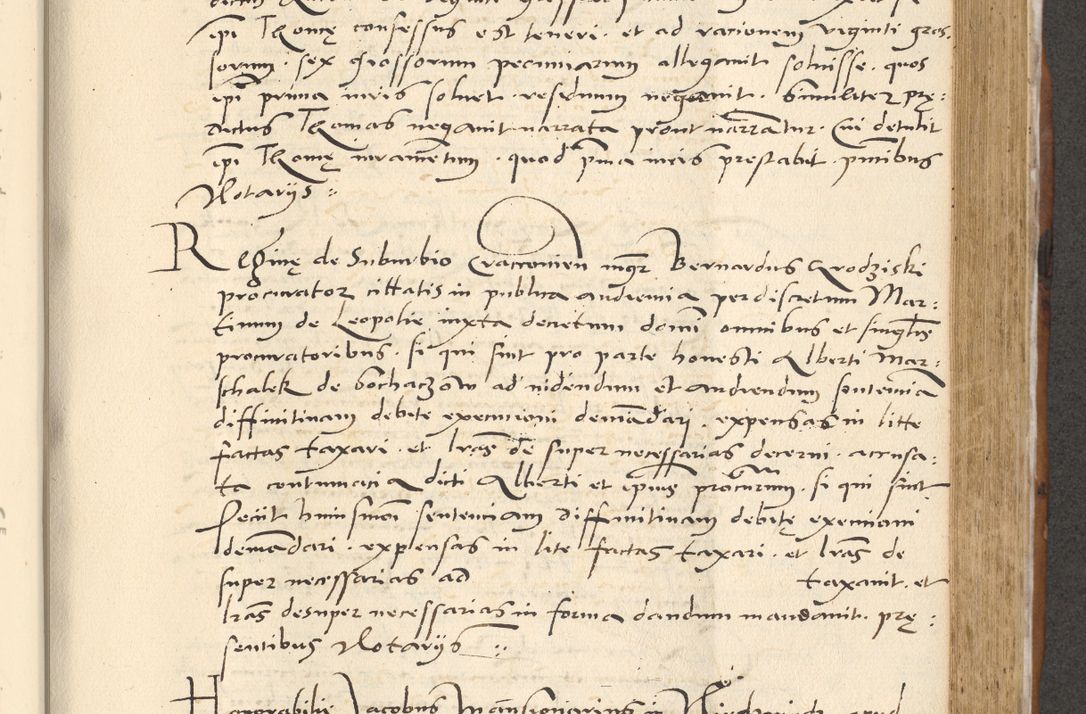 ipi Thomę confessus est teneri · et ad racionem viginti gros:
sorum · sex grossorum pecuniarum allegavit solvisse · quos
ipi prima iuris solvet · residuum negavit · Similiter prę:
dictus Thomas negavit narrata prout narrantur · Cui detulit
ipi Thomę iuramentum · quod prima iuris prestabit · pntibus
Notarijs :
Reginę de Suburbio Cracovien Bernardus Grodziski
procurator cittatis in publica audiencia per discretum Mar:
tinum de Leopolie iuxta decretum domini omnibus et singulis
procuratoribus · si qui sint pro parte honesti Alberti Mar:
schalek de Bochaczow ad videndum et audiendum sentenciã
diffinitivam debite execucioni demãdari · expensas in litte
factas taxari · et lrãs de super necessarias decerni · accusa:
ta contumacia dicti Alberti et ipius procurum · si qui sint
Peciit huiusmoi sentenciam diffinitivam debitę execucioni
demãdari · expensas in lite factas taxari · et lrãs de
super necessarias ad taxavit · et
lrãs desuper necessarias in forma dandum mandavit · prę:
sentibus Notarijs :
Honorabilis Jacobus Mansionarius in